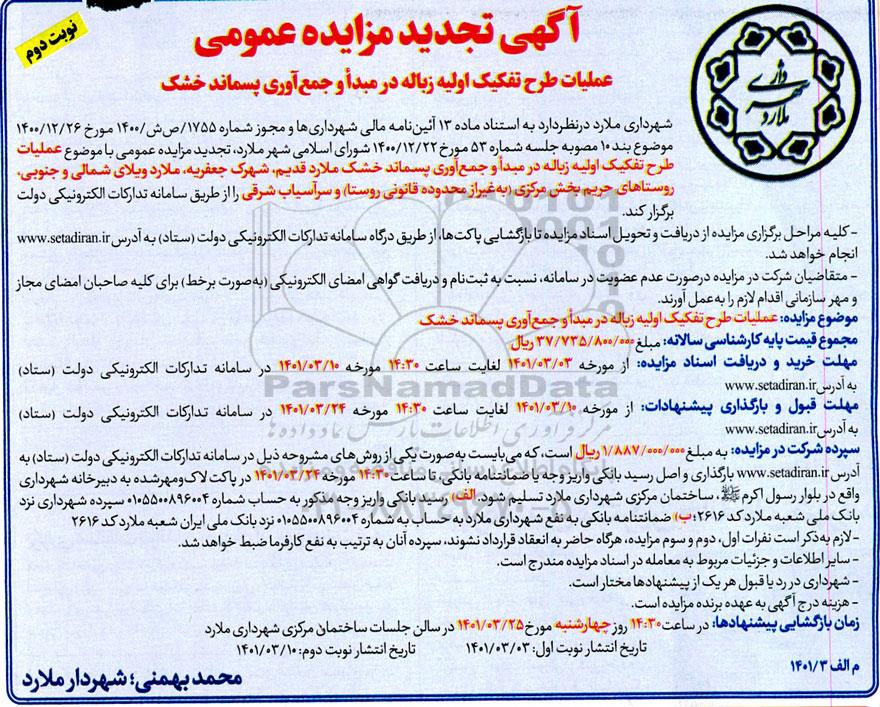 نوبت دوم
آگهی تجدید مزایده عمومی
عملیات طرح تفکیک اولیه زباله در مبدأ و جمع‌آوری پسماند خشک
شهرداری ملارد
شهرداری ملارد درنظردارد به استناد ماده ۱۳ آئین‌نامه مالی شهرداری‌ها و مجوز شماره ۱۷۵۵/ص‌ش/۱۴۰۰ مورخ ۱۴۰۰/۱۲/۲۶
موضوع بند ۱۰ مصوبه جلسه شماره ۵۳ مورخ ۱۴۰۰/۱۲/۲۲ شورای اسلامی شهر ملارد، تجدید مزایده عمومی با موضوع عملیات
طرح تفکیک اولیه زباله در مبدأ و جمع‌آوری پسماند خشک ملارد قدیم، شهرک جعفریه، ملارد ویلای شمالی و جنوبی،
روستاهای حریم بخش مرکزی (به‌غیراز محدوده قانونی روستا) و سرآسیاب شرقی را از طریق سامانه تدارکات الکترونیکی دولت
برگزار کند.
- کلیه مراحل برگزاری مزایده از دریافت و تحویل اسناد مزایده تا بازگشایی پاکت‌ها، از طریق درگاه سامانه تدارکات الکترونیکی دولت (ستاد) به آدرس www.setadiran.ir
انجام خواهد شد.
- متقاضیان شرکت در مزایده درصورت عدم عضویت در سامانه، نسبت به ثبت‌نام و دریافت گواهی امضای الکترونیکی (به‌صورت برخط) برای کلیه صاحبان امضای مجاز
و مهر سازمانی اقدام لازم را به‌عمل آورند.
موضوع مزایده: عملیات طرح تفکیک اولیه زباله در مبدأ و جمع‌آوری پسماند خشک
مجموع قیمت پایه کارشناسی سالانه: مبلغ ۳۷/۷۳۵/۸۰۰/۰۰۰ ریال
مهلت خرید و دریافت اسناد مزایده: از مورخه ۱۴۰۱/۰۳/۰۳ لغایت ساعت ۱۴:۳۰ مورخه ۱۴۰۱/۰۳/۱۰ در سامانه تدارکات الکترونیکی دولت (ستاد)
به آدرس www.setadiran.ir
مهلت قبول و بارگذاری پیشنهادات: از مورخه ۱۴۰۱/۰۳/۱۰ لغایت ساعت ۱۴:۳۰ مورخه ۱۴۰۱/۰۳/۲۴ در سامانه تدارکات الکترونیکی دولت (ستاد)
به آدرس www.setadiran.ir
سپرده شرکت در مزایده: به مبلغ ۱/۸۸۷/۰۰۰/۰۰۰ ریال است، که می‌بایست به‌صورت یکی از روش‌های مشروحه ذیل در سامانه تدارکات الکترونیکی دولت (ستاد) به
آدرس www.setadiran.ir بارگذاری و اصل رسید بانکی واریز وجه یا ضمانتنامه بانکی، تا ساعت ۱۴:۳۰ مورخه ۱۴۰۱/۰۳/۲۴ در پاکت لاک‌ومهرشده به دبیرخانه شهرداری
واقع در بلوار رسول اکرم ﷺ، ساختمان مرکزی شهرداری ملارد تسلیم شود. الف) رسید بانکی واریز وجه مذکور به حساب شماره ۰۱۰۵۵۰۰۸۹۶۰۰۴ سپرده شهرداری نزد
بانک ملی شعبه ملارد کد ۲۶۱۶؛ ب) ضمانتنامه بانکی به نفع شهرداری ملارد به حساب به شماره ۰۱۰۵۵۰۰۸۹۶۰۰۴ نزد بانک ملی ایران شعبه ملارد کد ۲۶۱۶
- لازم به‌ذکر است نفرات اول، دوم و سوم مزایده، هرگاه حاضر به انعقاد قرارداد نشوند، سپرده آنان به ترتیب به نفع کارفرما ضبط خواهد شد.
- سایر اطلاعات و جزئیات مربوط به معامله در اسناد مزایده مندرج است.
- شهرداری در رد یا قبول هر یک از پیشنهادها مختار است.
- هزینه درج آگهی به عهده برنده مزایده است.
زمان بازگشایی پیشنهادها: در ساعت ۱۴:۳۰ روز چهارشنبه مورخ ۱۴۰۱/۰۳/۲۵ در سالن جلسات ساختمان مرکزی شهرداری ملارد
تاریخ انتشار نوبت اول: ۱۴۰۱/۰۳/۰۳ تاریخ انتشار نوبت دوم: ۱۴۰۱/۰۳/۱۰
م الف ۱۴۰۱/۳
محمد بهمنی؛ شهردار ملارد
ParsNamadData
مرکز فرآوری اطلاعات پارس نماد داده‌ها